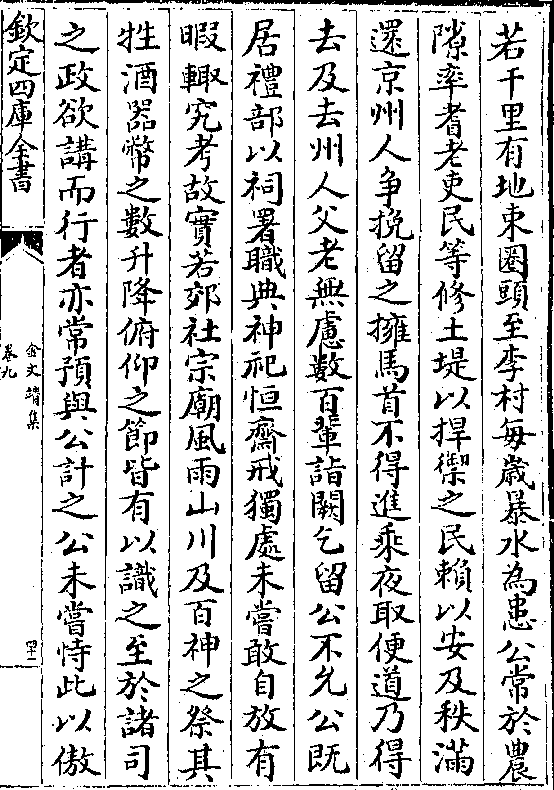 若千里有地東圏頭至李村每歳暴水為患公常於農
隙率耆老吏民等修土堤以捍禦之民賴以安及秩滿
還京州人爭挽留之擁馬首不得進乘夜取便道乃得
去及去州人父老無慮數百輩詣闕乞留公不允公既
居禮部以祠署職典神祀恒齋戒獨處未嘗敢自放有
暇輙究考故實若郊社宗廟風雨山川及百神之祭其
牲酒器幣之數升降俯仰之節皆有以識之至於諸司
之政欲講而行者亦常預與公計之公未嘗恃此以傲
欽定四庫全書
金文靖集
卷九
四十二